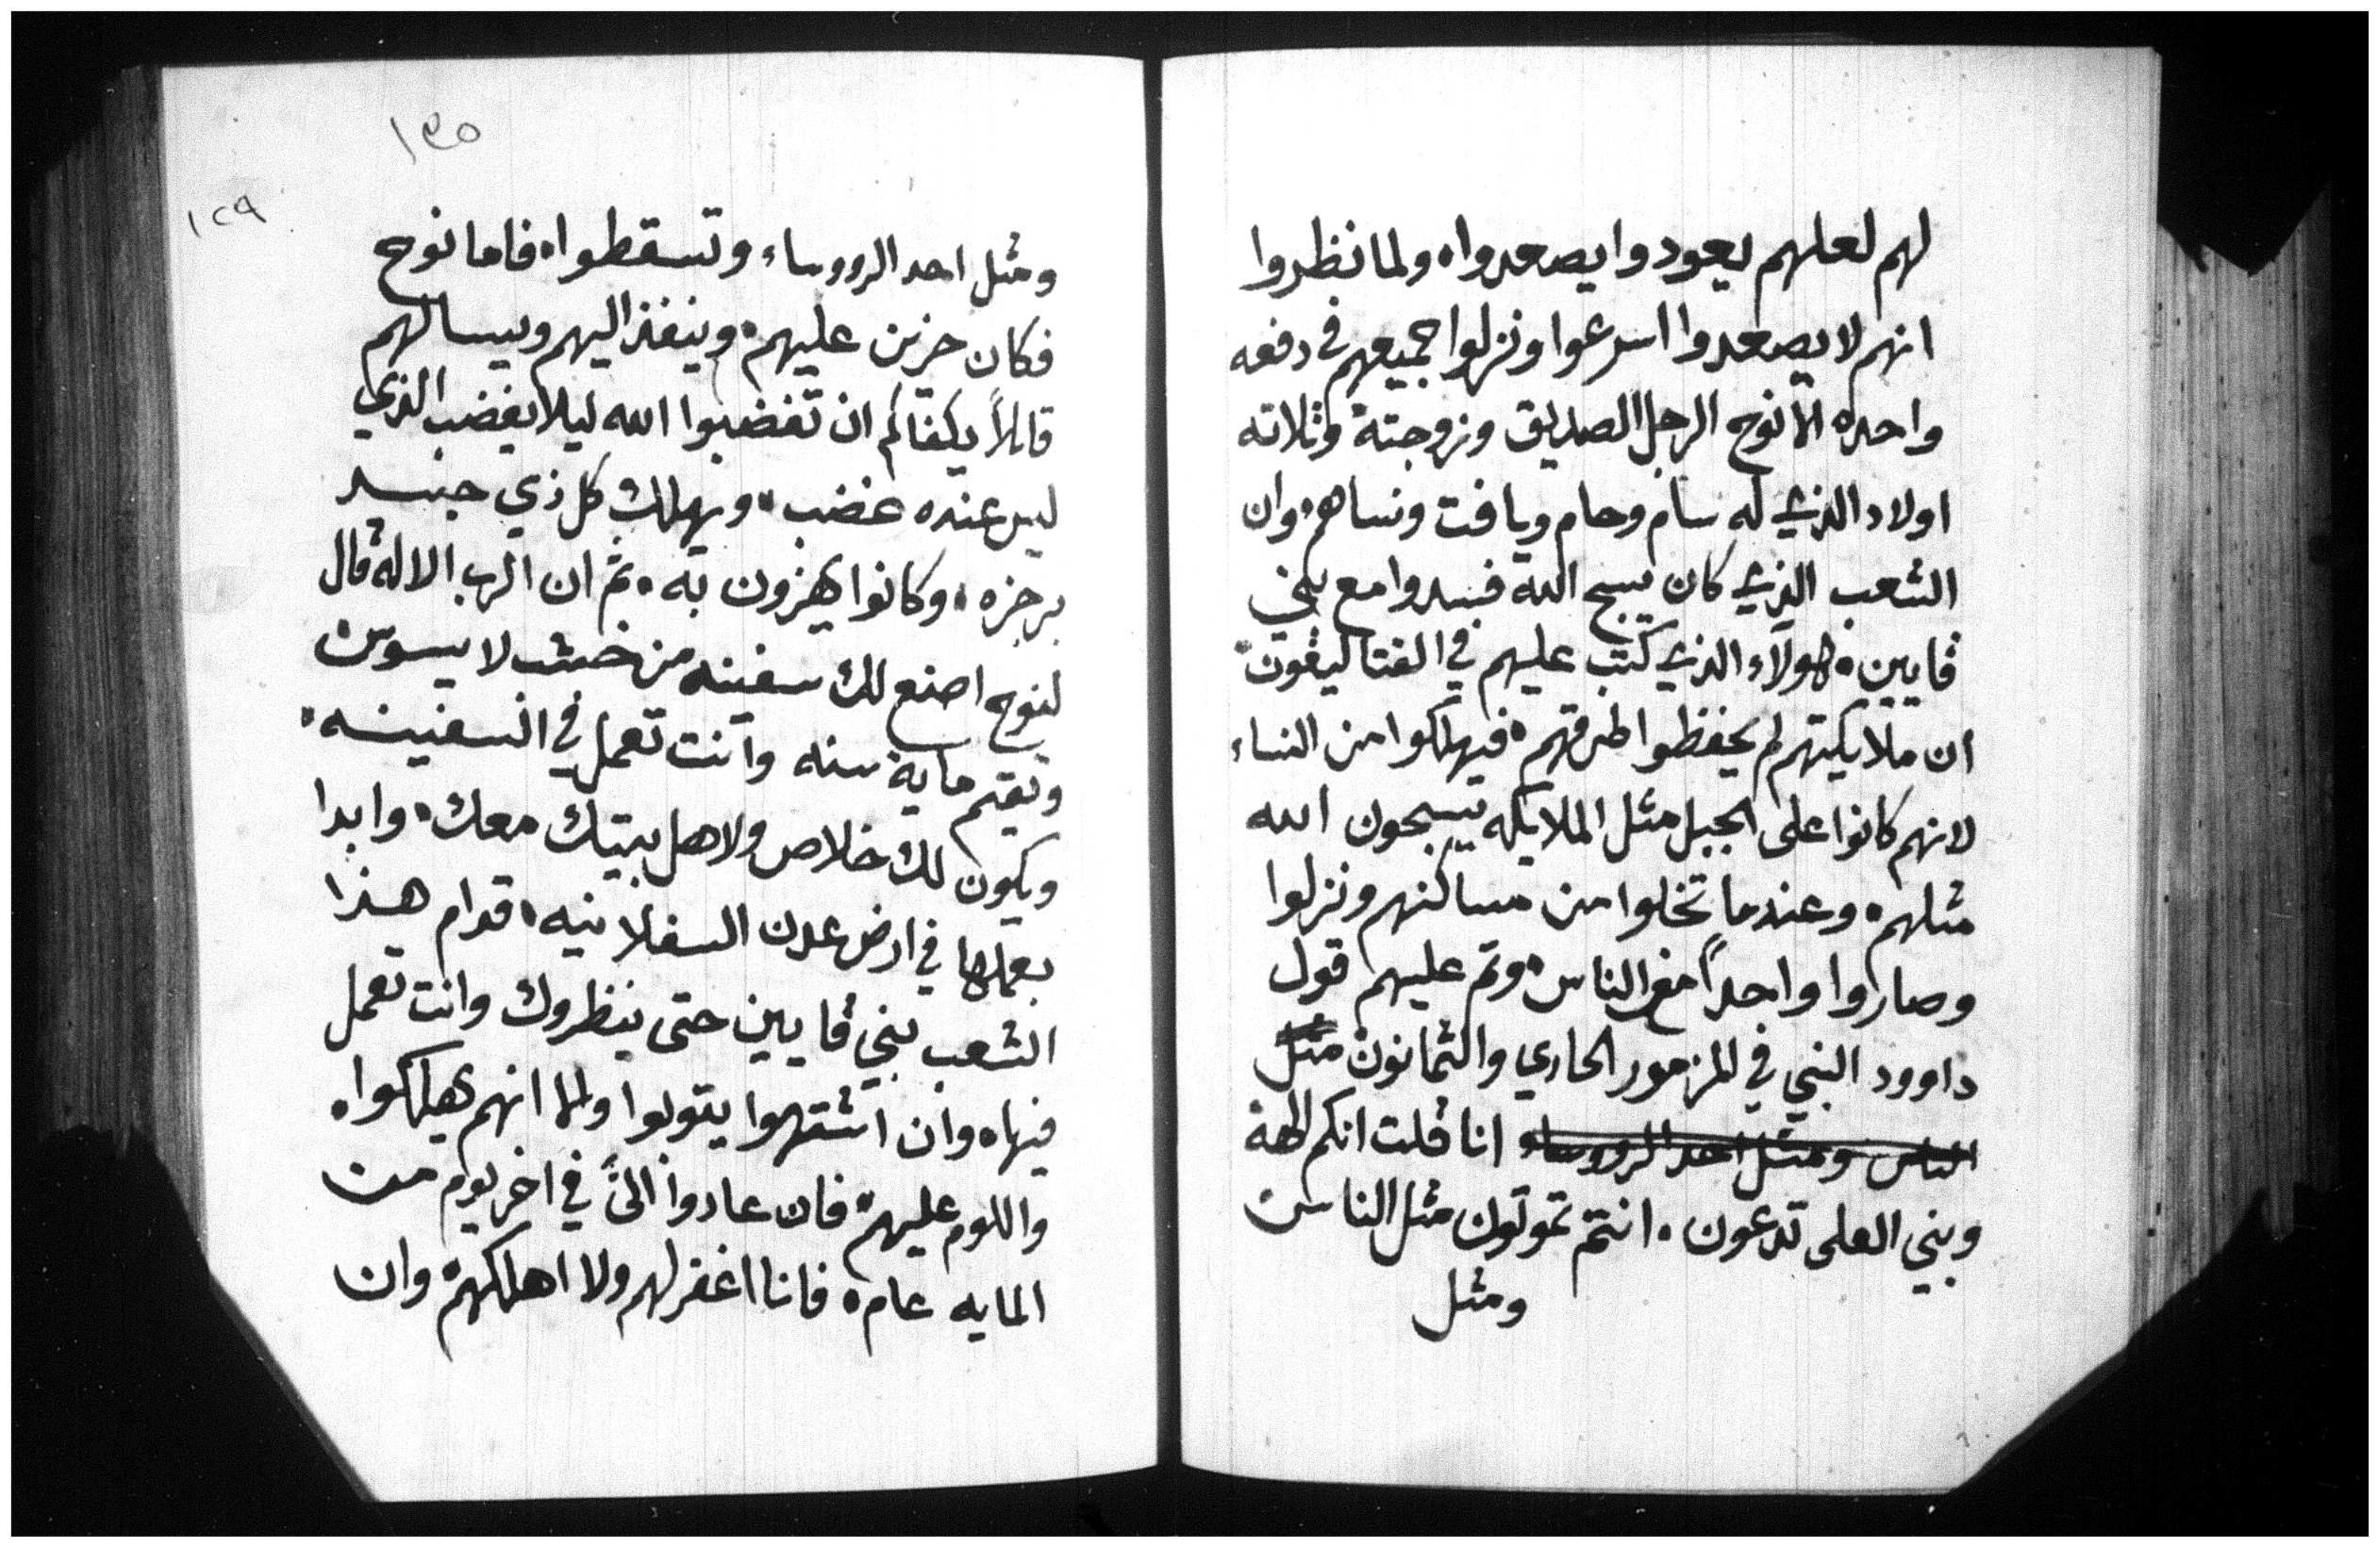 لهم لعلهم يعودوا يصعدوا ولما نظروا
انهم لا يصعدوا اسرعوا ونزلوا جميعهم في دفعه
واحده الا نوح الرجل الصديق وزوجتة وثلاته
اولاد الذي له سام وحام ويافت ونساهم وان
الشعب الذي كان يسبح الله فسدوا مع بني
قايين هولاء الذي كتب عليهم في
ان ملايكيتهم لم يحفظوا فيهلكوا من النساء
لانهم كانوا على الجبل مثل الملايكه يسبحون الله
مثلهم وعندما تخلوا من مساكنهم ونزلوا
وصاروا واحداً مع الناس وتم عليهم قول
داوود النبي في المزمور الحادي والثمانون مثل
الناس ومثل احد الرووساء انا قلت انكم الهة
وبني العلى تدعون انتم تموتون مثل الناس
ومثل
١٣٥
١٢٩
ومثل احد الرووساء وتسقطوا فاما نوح
فكان حزين عليهم وينفذ اليهم ويسالهم
قايلاً يكفاكم ان تغضبوا الله ليلا يغضب الذي
ليس عنده غضب ويهلك كل ذي جسد
برجزه وكانوا يهزون به ثم ان الرب الاله قال
لنوح اصنع لك سفينه من خشب لا يسوس
وتقيم ماية سنه وانت تعمل في السفينه
ويكون لك خلاص ولاهل بيتك معك وابدا
بعملها في ارض عدن السفلانيه قدام هذا
الشعب بني قايين حتى ينظروك وانت تعمل
فيها وان اشتهوا يتوبوا ولما انهم يهلكوا
واللوم عليهم فان عادوا اليَّ في اخر يوم من
المايه عام فانا اغفر لهم ولا اهلكهم وان